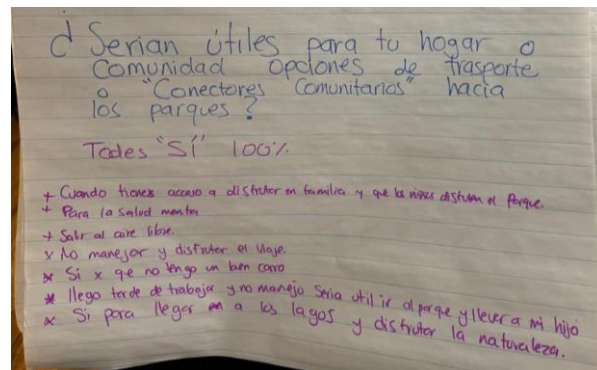 ¿Serian útiles para tu hogar o
Comunidad opciones de trasporte
o "Conectores Comunitarios" hacia
los parques?
Todes "SÍ" 100%
+ Cuando tienes acceso a disfrutar en familia y que los niños disfruten el Parque.
+ Para la salud mental
+ Salir al aire libre.
x No manejar y disfruter el viaje.
* Si x que no tengo un buen carro
* llego tarde de trabajar y no manejo seria util ir al parque y llevar a mi hijo
* Si para llegar a los lagos y disfrutar la naturaleza.